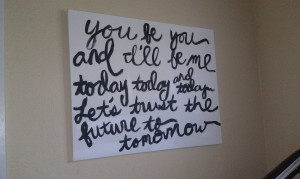 you be you
and i'll be me
today today and today
Let's trust the
future to
tomorrow